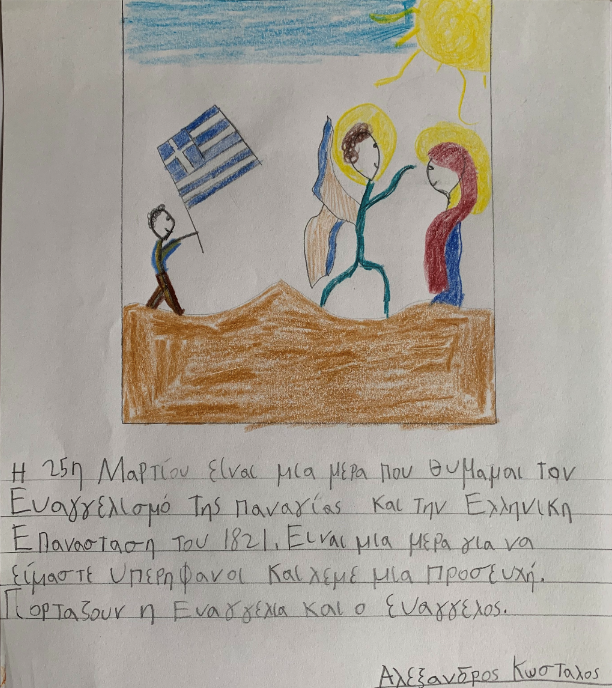 Η 25η Μαρτίου είναι μια μερα που θυμαμαι τον
Ευαγγελισμό της παναγίας και την Ελληνικη
Επανασταση του 1821. Ειναι μια μερα για να
είμαστε υπερηφανοι και λεμε μια προσευχή.
Γιορταζουν η Ευαγγελια και ο Ευαγγελος.
Αλεξανδρος Κωσταλος